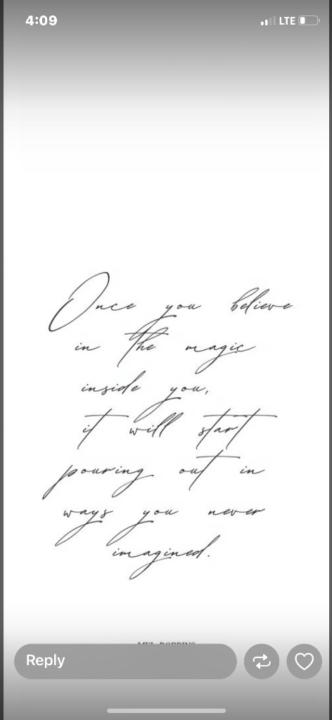 4:09
LTE
Once you believe
in the magic
inside you,
it will start
pouring out in
ways you never
imagined.
Reply